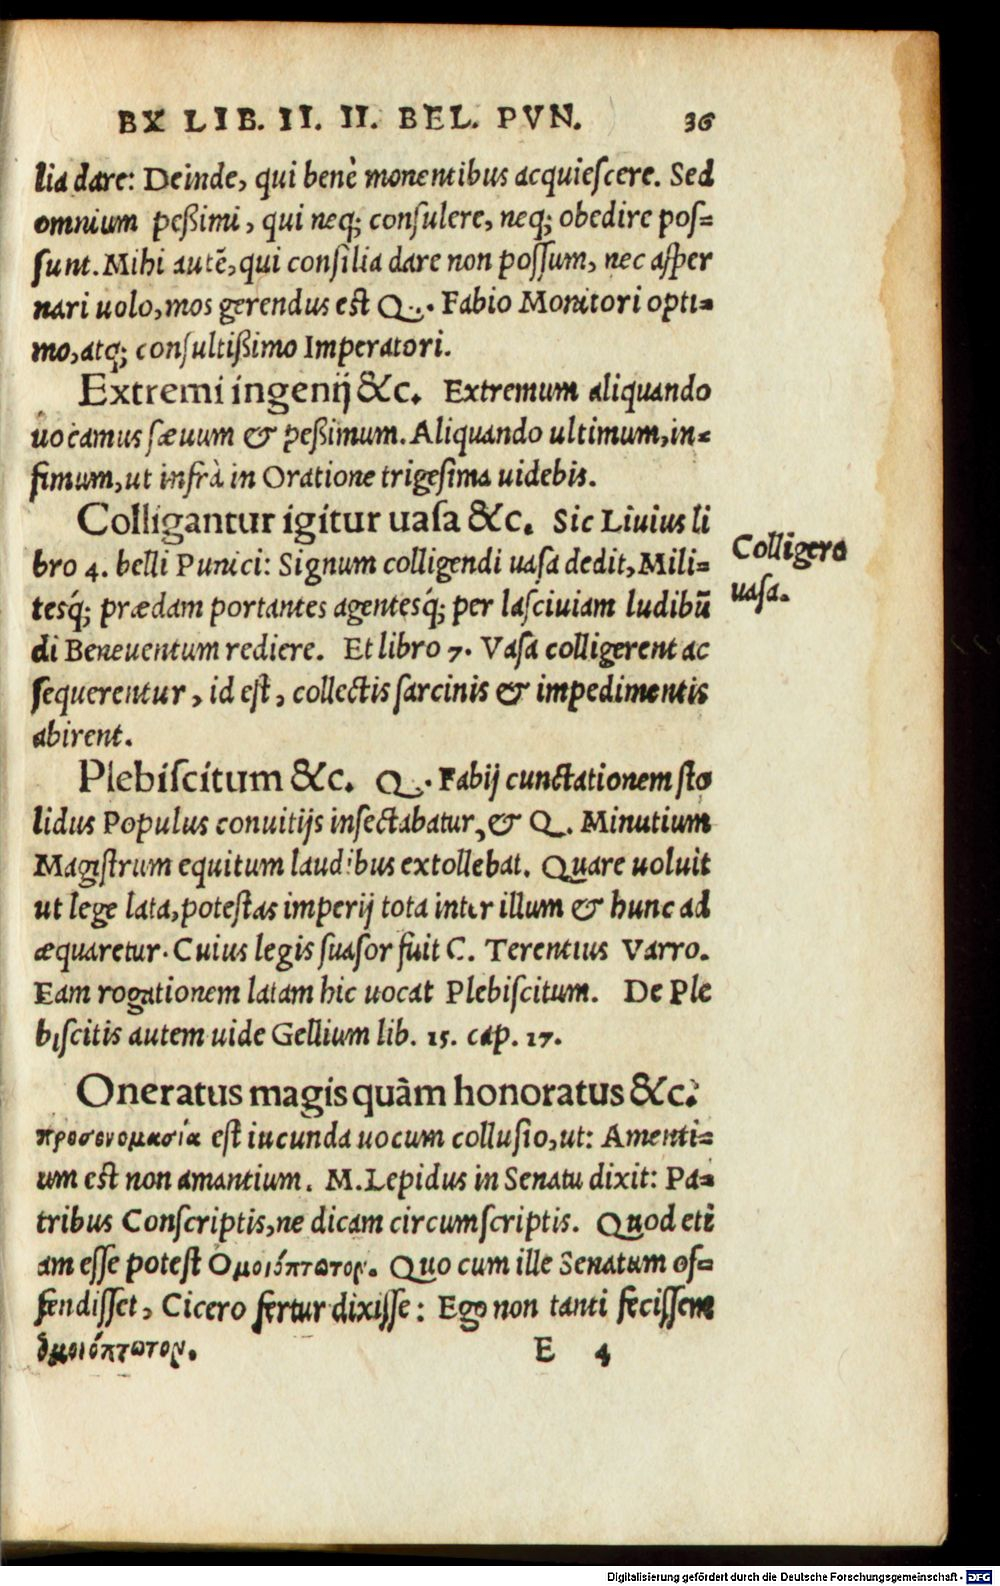 EX LIB. II. II. BEL. PVN. 36
lia dare: Deinde, qui benè monentibus acquiescere. Sed
omnium peßimi, qui neq; consulere, neq; obedire pos-
sunt. Mihi autẽ, qui consilia dare non possum, nec asper
nari uolo, mos gerendus est Q. Fabio Monitori opti-
mo, atq; consultißimo Imperatori.
Extremi ingenij &c. Extremum aliquando
uocamus sæuum & peßimum. Aliquando ultimum, in-
fimum, ut infrà in Oratione trigesima uidebis.
Colligantur igitur uasa &c. Sic Liuius li
bro 4. belli Punici: Signum colligendi uasa dedit, Mili-
tesq́; prædam portantes agentesq́; per lasciuiam ludibũ
di Beneuentum rediere. Et libro 7. Vasa colligerent ac
sequerentur, id est, collectis sarcinis & impedimentis
abirent.
Colligere
uasa.
Plebiscitum &c. Q. Fabij cunctationem sto
lidus Populus conuitijs insectabatur, & Q. Minutium
Magistrum equitum laudibus extollebat. Quare uoluit
ut lege lata, potestas imperij tota inter illum & hunc ad
æquaretur. Cuius legis suasor fuit C. Terentius Varro.
Eam rogationem latam hic uocat Plebiscitum. De Ple
biscitis autem uide Gellium lib. 15. cap. 17.
Oneratus magis quàm honoratus &c.
προσονομασία est iucunda uocum collusio, ut: Amenti-
um est non amantium. M. Lepidus in Senatu dixit: Pa-
tribus Conscriptis, ne dicam circumscriptis. Quod eti
am esse potest Ομοιόπτωτον. Quo cum ille Senatum of-
fendisset, Cicero fertur dixisse: Ego non tanti fecissem
ὁμοιόπτωτον. E 4
Digitalisierung gefördert durch die Deutsche Forschungsgemeinschaft - DFG